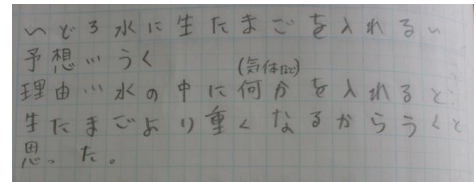 いどろ水に生たまごを入れるい
予想…うく
(気体など)
理由…水の中に何かを入れると
生たまごより重くなるからうくと
思った。